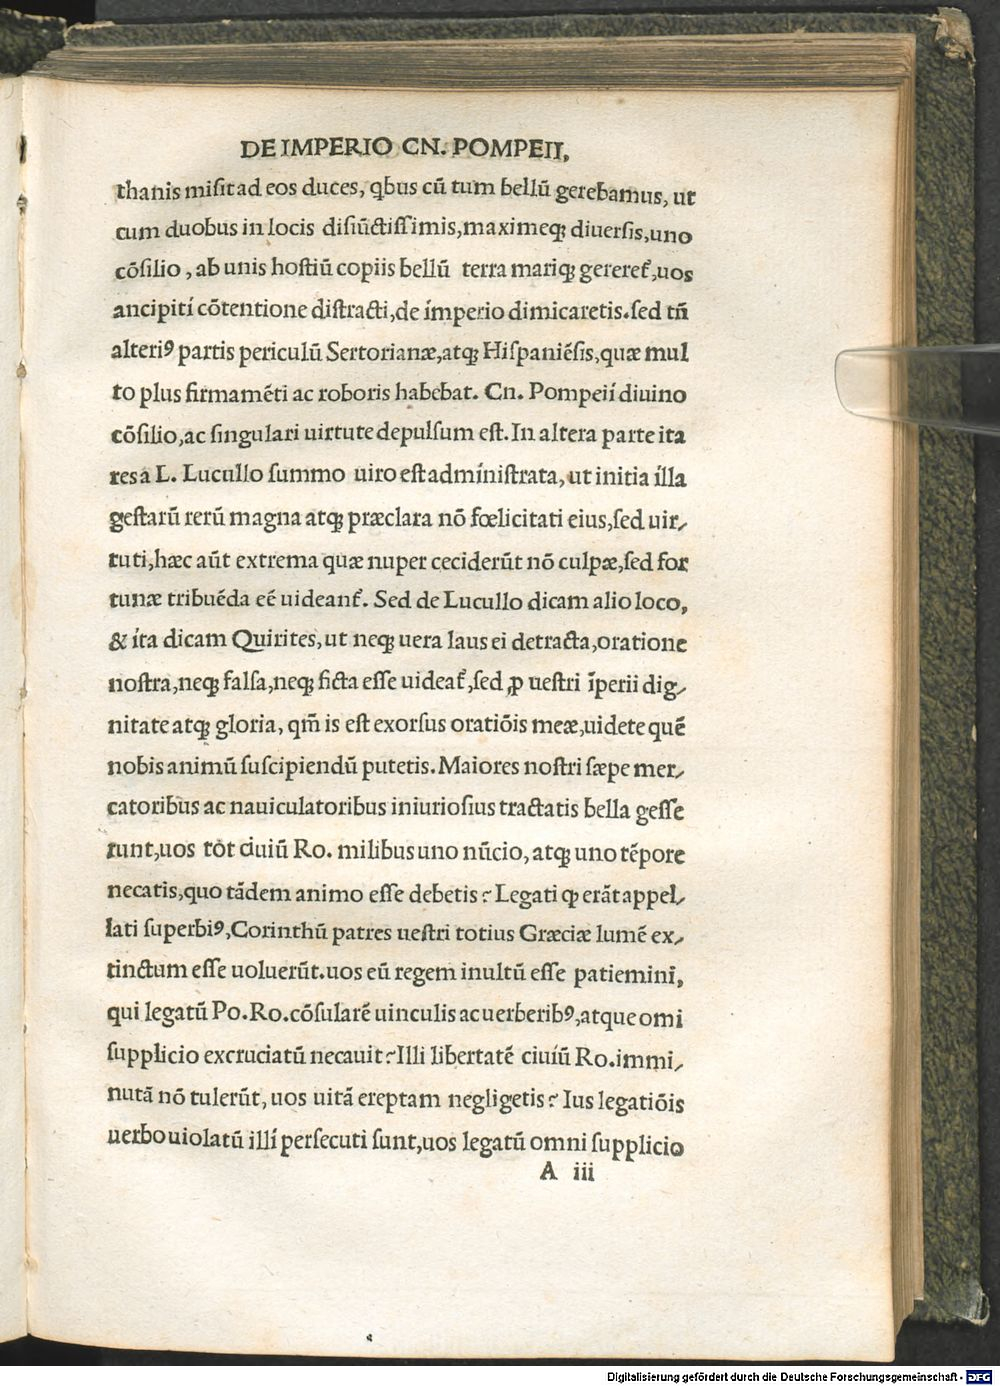 DE IMPERIO CN. POMPEII,
thanis misit ad eos duces, qbus cũ tum bellũ gerebamus, ut
cum duobus in locis disiũctissimis, maximeqꝫ diuersis, uno
cõsilio, ab unis hostiũ copiis bellũ terra mariqꝫ gereret᷑, uos
ancipiti cõtentione distracti, de imperio dimicaretis. sed tñ
alteriꝰ partis periculũ Sertorianæ, atqꝫ Hispaniẽsis, quæ mul
to plus firmamẽti ac roboris habebat. Cn. Pompeii diuino
cõsilio, ac singulari uirtute depulsum est. In altera parte ita
res a L. Lucullo summo uiro est administrata, ut initia illa
gestarũ rerũ magna atqꝫ præclara nõ fœlicitati eius, sed uir-
tuti, hæc aũt extrema quæ nuper ceciderũt nõ culpæ, sed for
tunæ tribuẽda eẽ uideant᷑. Sed de Lucullo dicam alio loco,
& ita dicam Quirites, ut neqꝫ uera laus ei detracta, oratione
nostra, neqꝫ falsa, neqꝫ ficta esse uideat᷑, sed ꝓ uestri ĩperii dig-
nitate atqꝫ gloria, qm̃ is est exorsus oratiõis meæ, uidete quẽ
nobis animũ suscipiendũ putetis. Maiores nostri sæpe mer-
catoribus ac nauiculatoribus iniuriosius tractatis bella gesse
runt, uos tot ciuiũ Ro. milibus uno nũcio, atqꝫ uno tẽpore
necatis, quo tãdem animo esse debetis? Legati ꝙ erãt appel-
lati superbiꝰ, Corinthũ patres uestri totius Græciæ lumẽ ex-
tinctum esse uoluerũt. uos eũ regem inultũ esse patiemini,
qui legatũ Po. Ro. cõsularẽ uinculis ac uerberibꝰ, atque omi
supplicio excruciatũ necauit? Illi libertatẽ ciuiũ Ro. immi-
nutã nõ tulerũt, uos uitã ereptam negligetis? Ius legatiõis
uerbo uiolatũ illi persecuti sunt, uos legatũ omni supplicio
A iii
Digitalisierung gefördert durch die Deutsche Forschungsgemeinschaft - DFG